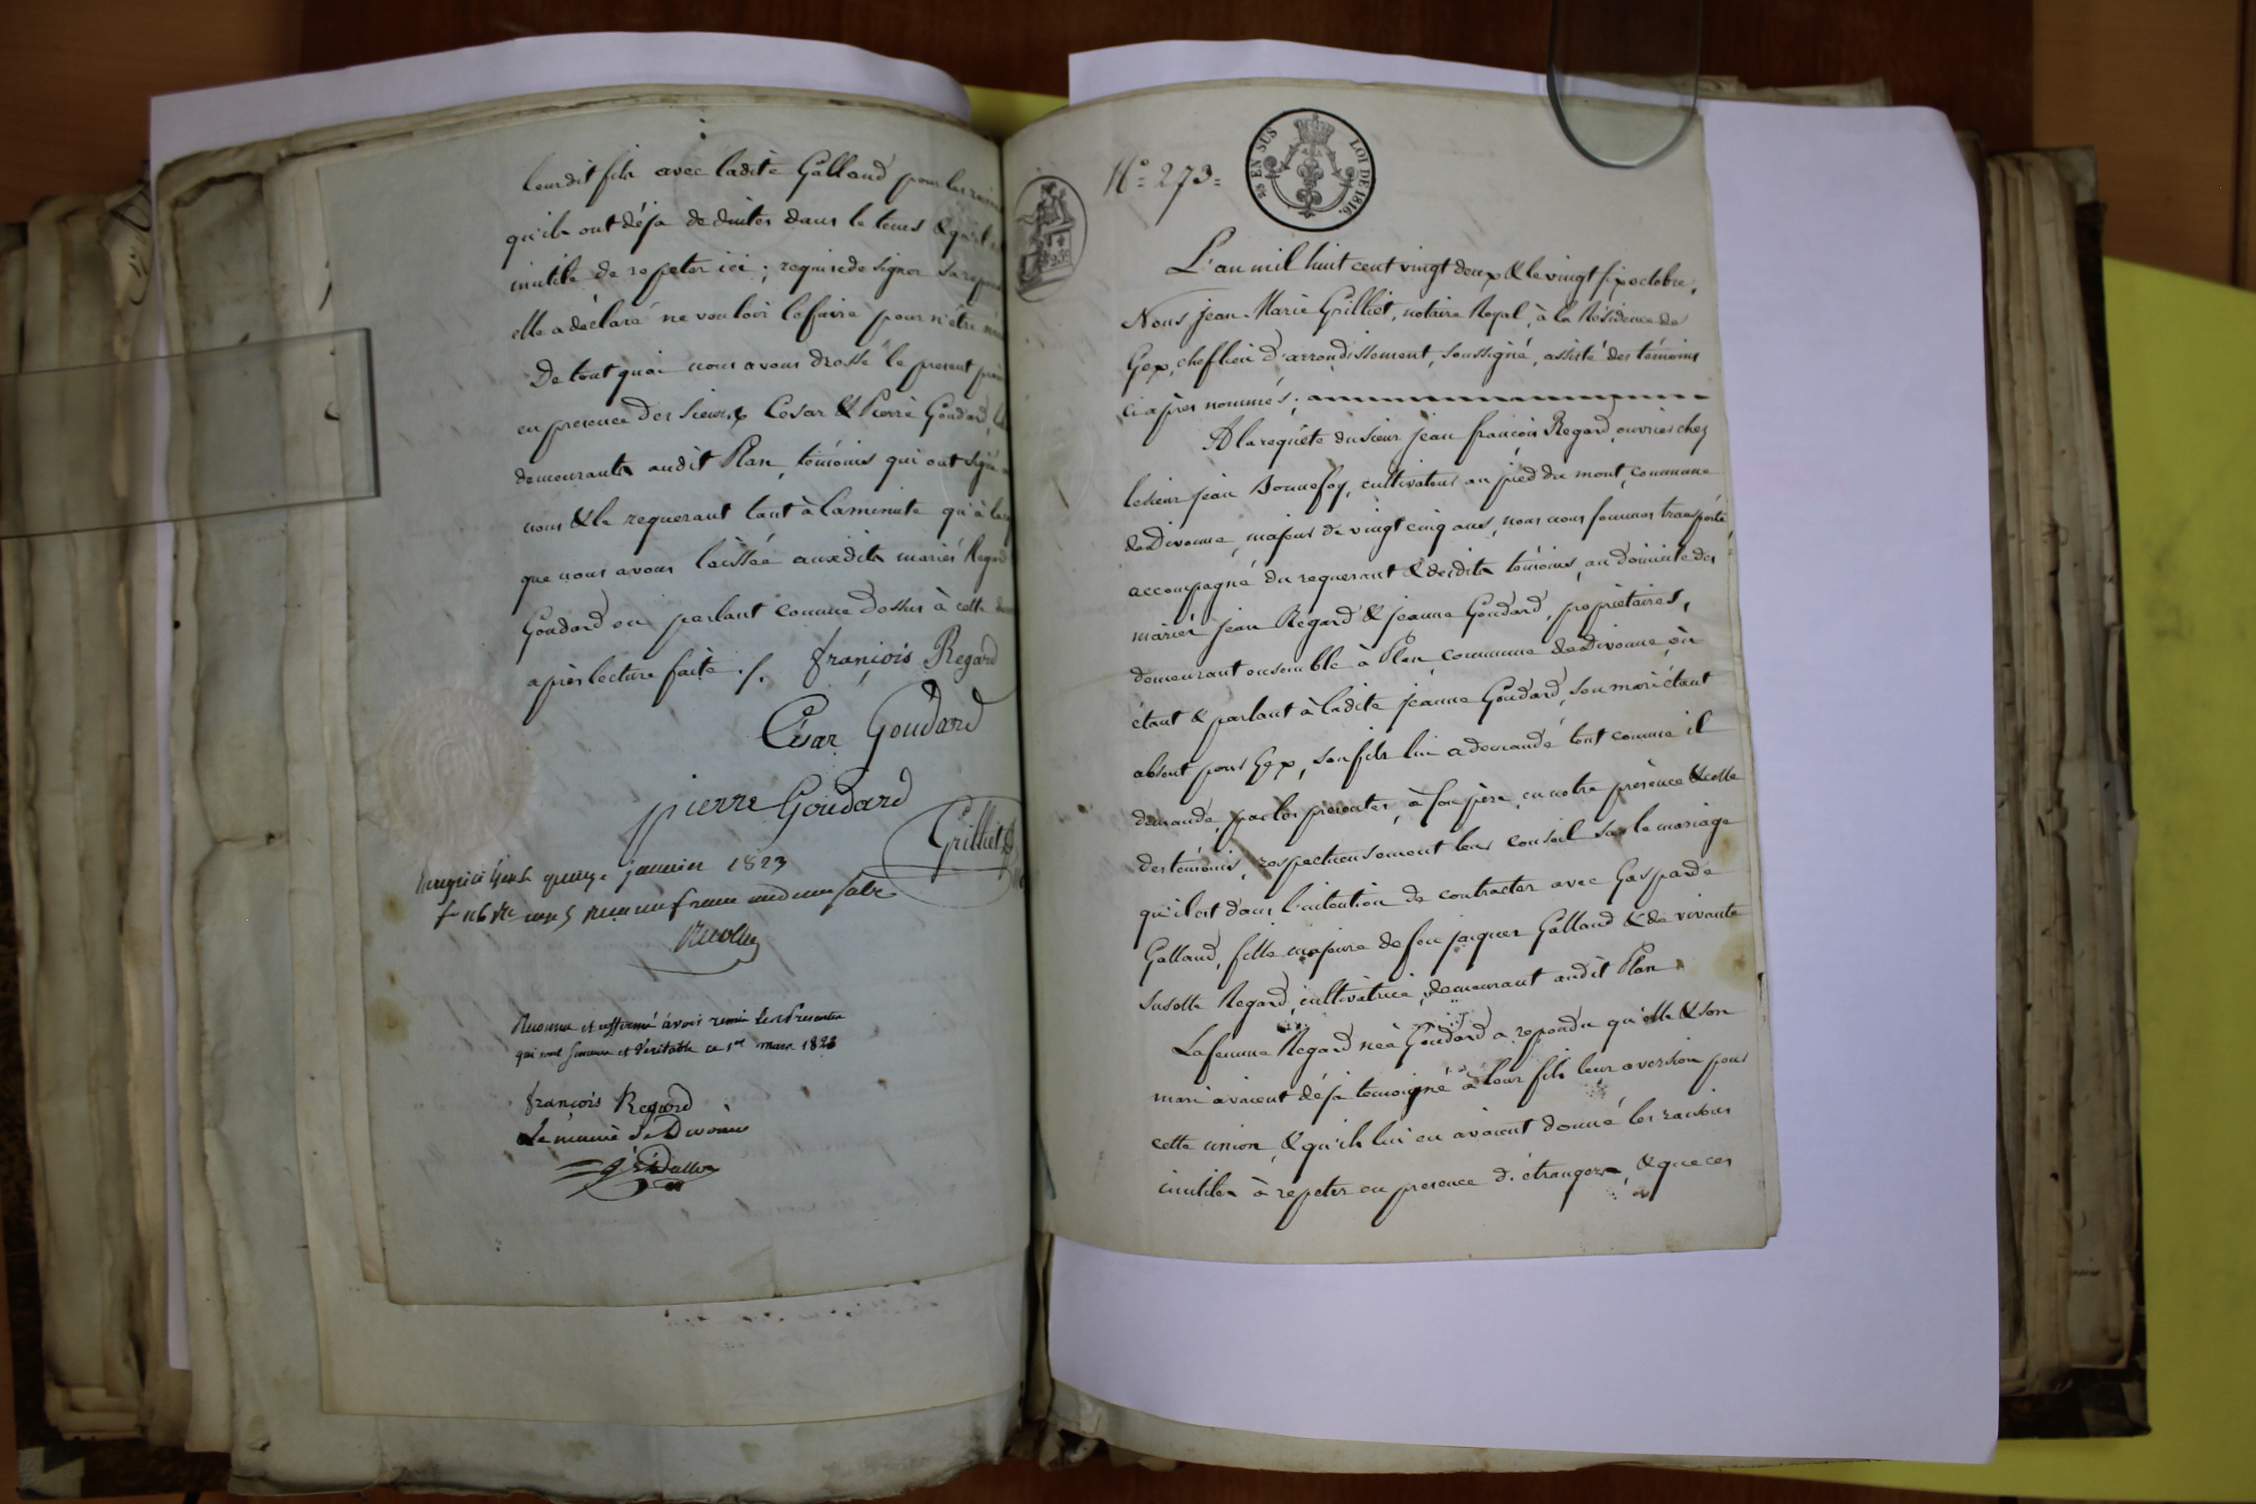 leurdit fils avec ladite Galland pour les
qu'ils ont déja deduites dans le tems & qu'il
inutile de repeter ici ; requise de signer sa
elle a declaré ne vouloir le faire pour n'être
De tout quoi nous avons dressé le present
en presence des sieurs Cesar & Pierre Goudard,
demeurants audit Plan, témoins qui ont signé
nous & le requerant tant à la minute qu'à la
que nous avons laissée auxdits mariés Regard
Goudard en parlant comme dessus à cette
après lecture faite ./. françois Regard
César Goudard
pierre Goudard
Grilliet
janvier 1823
Reconnu et affirmé avoir remis les Presentes
qui sont sincere et Veritable ce 1er mars 1823
françois Regard
Le maire de Divonne
N.° 273=
EN SUS LOI DE 1816.
L'an mil huit cent vingt deux & le vingt six octobre,
Nous jean-Marie Grilliet, notaire Royal, à la Résidence de
Gex, chef lieu d'arrondissement, soussigné, assisté des témoins
ci après nommés ;
A la requête du sieur jean françois Regard, ouvrier chez
le sieur jean Bonnefoy, cultivateur au pied du mont, commune
de Divonne, majeur de vingt cinq ans, nous nous sommes transporté,
accompagné du requerant & desdits témoins, au domicile des
mariés jean Regard & jeanne Goudard, propriétaires,
demeurant ensemble à Plan, commune de Divonne, où
étant & parlant à ladite jeanne Goudard, son mari étant
absent pour Gex, son fils lui a demandé tout comme il
demande, par les presentes, à son père, en notre présence & celle
des témoins, respectueusement leur conseil sur le mariage
qu'il est dans l'intention de contracter avec Gasparde
Galland, fille majeure de feu jacques Galland & de vivante
Susette Regard, cultivatrice, demeurant audit Plan
La femme Regard née Goudard a repondu qu'elle & son
mari avaient déja temoigné à leur fils leur aversion pour
cette union, & qu'ils lui en avaient donné les raisons
inutiles à repeter en presence d'étrangers, & que ces